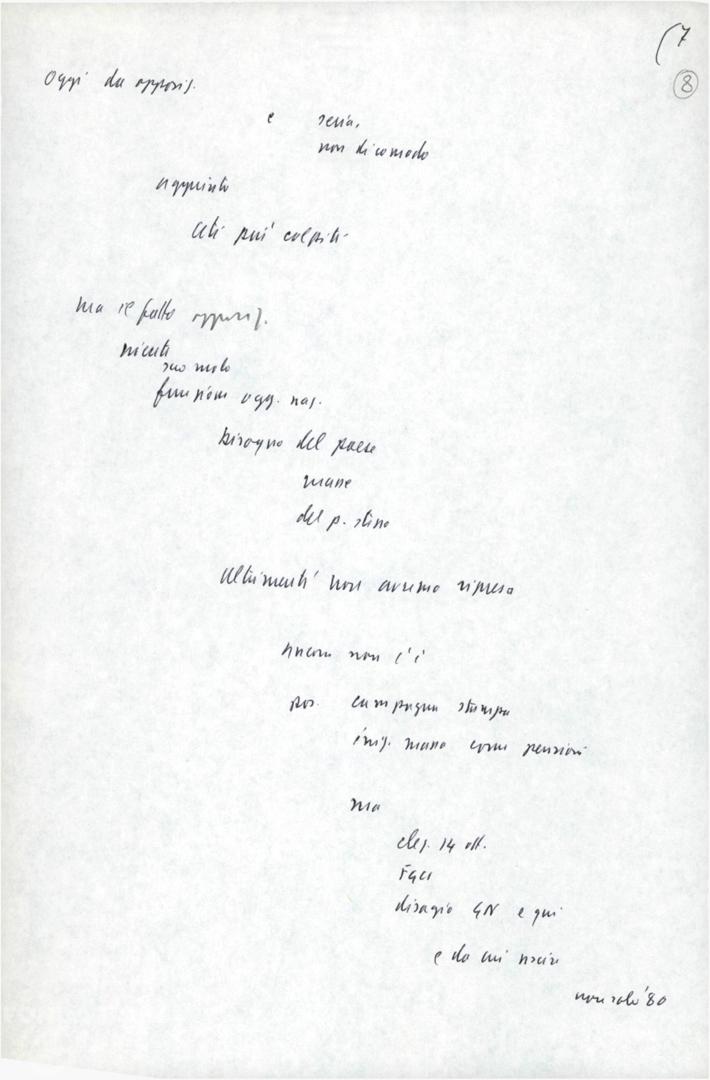 (7
8
Oggi da opposiz.
e seria,
non di comodo
appunto
ceti più colpiti
ma se fatto opposiz.
niente
suo ruolo
funzione ogg. naz.
bisogno del paese
masse
del p. stesso
altrimenti non avremo ripresa
ancora non c'è
pos. campagna stampa
iniz. massa come pensioni
ma
elez. 14 ott.
FGCI
disagio GN e qui
e da cui uscire
non solo '80